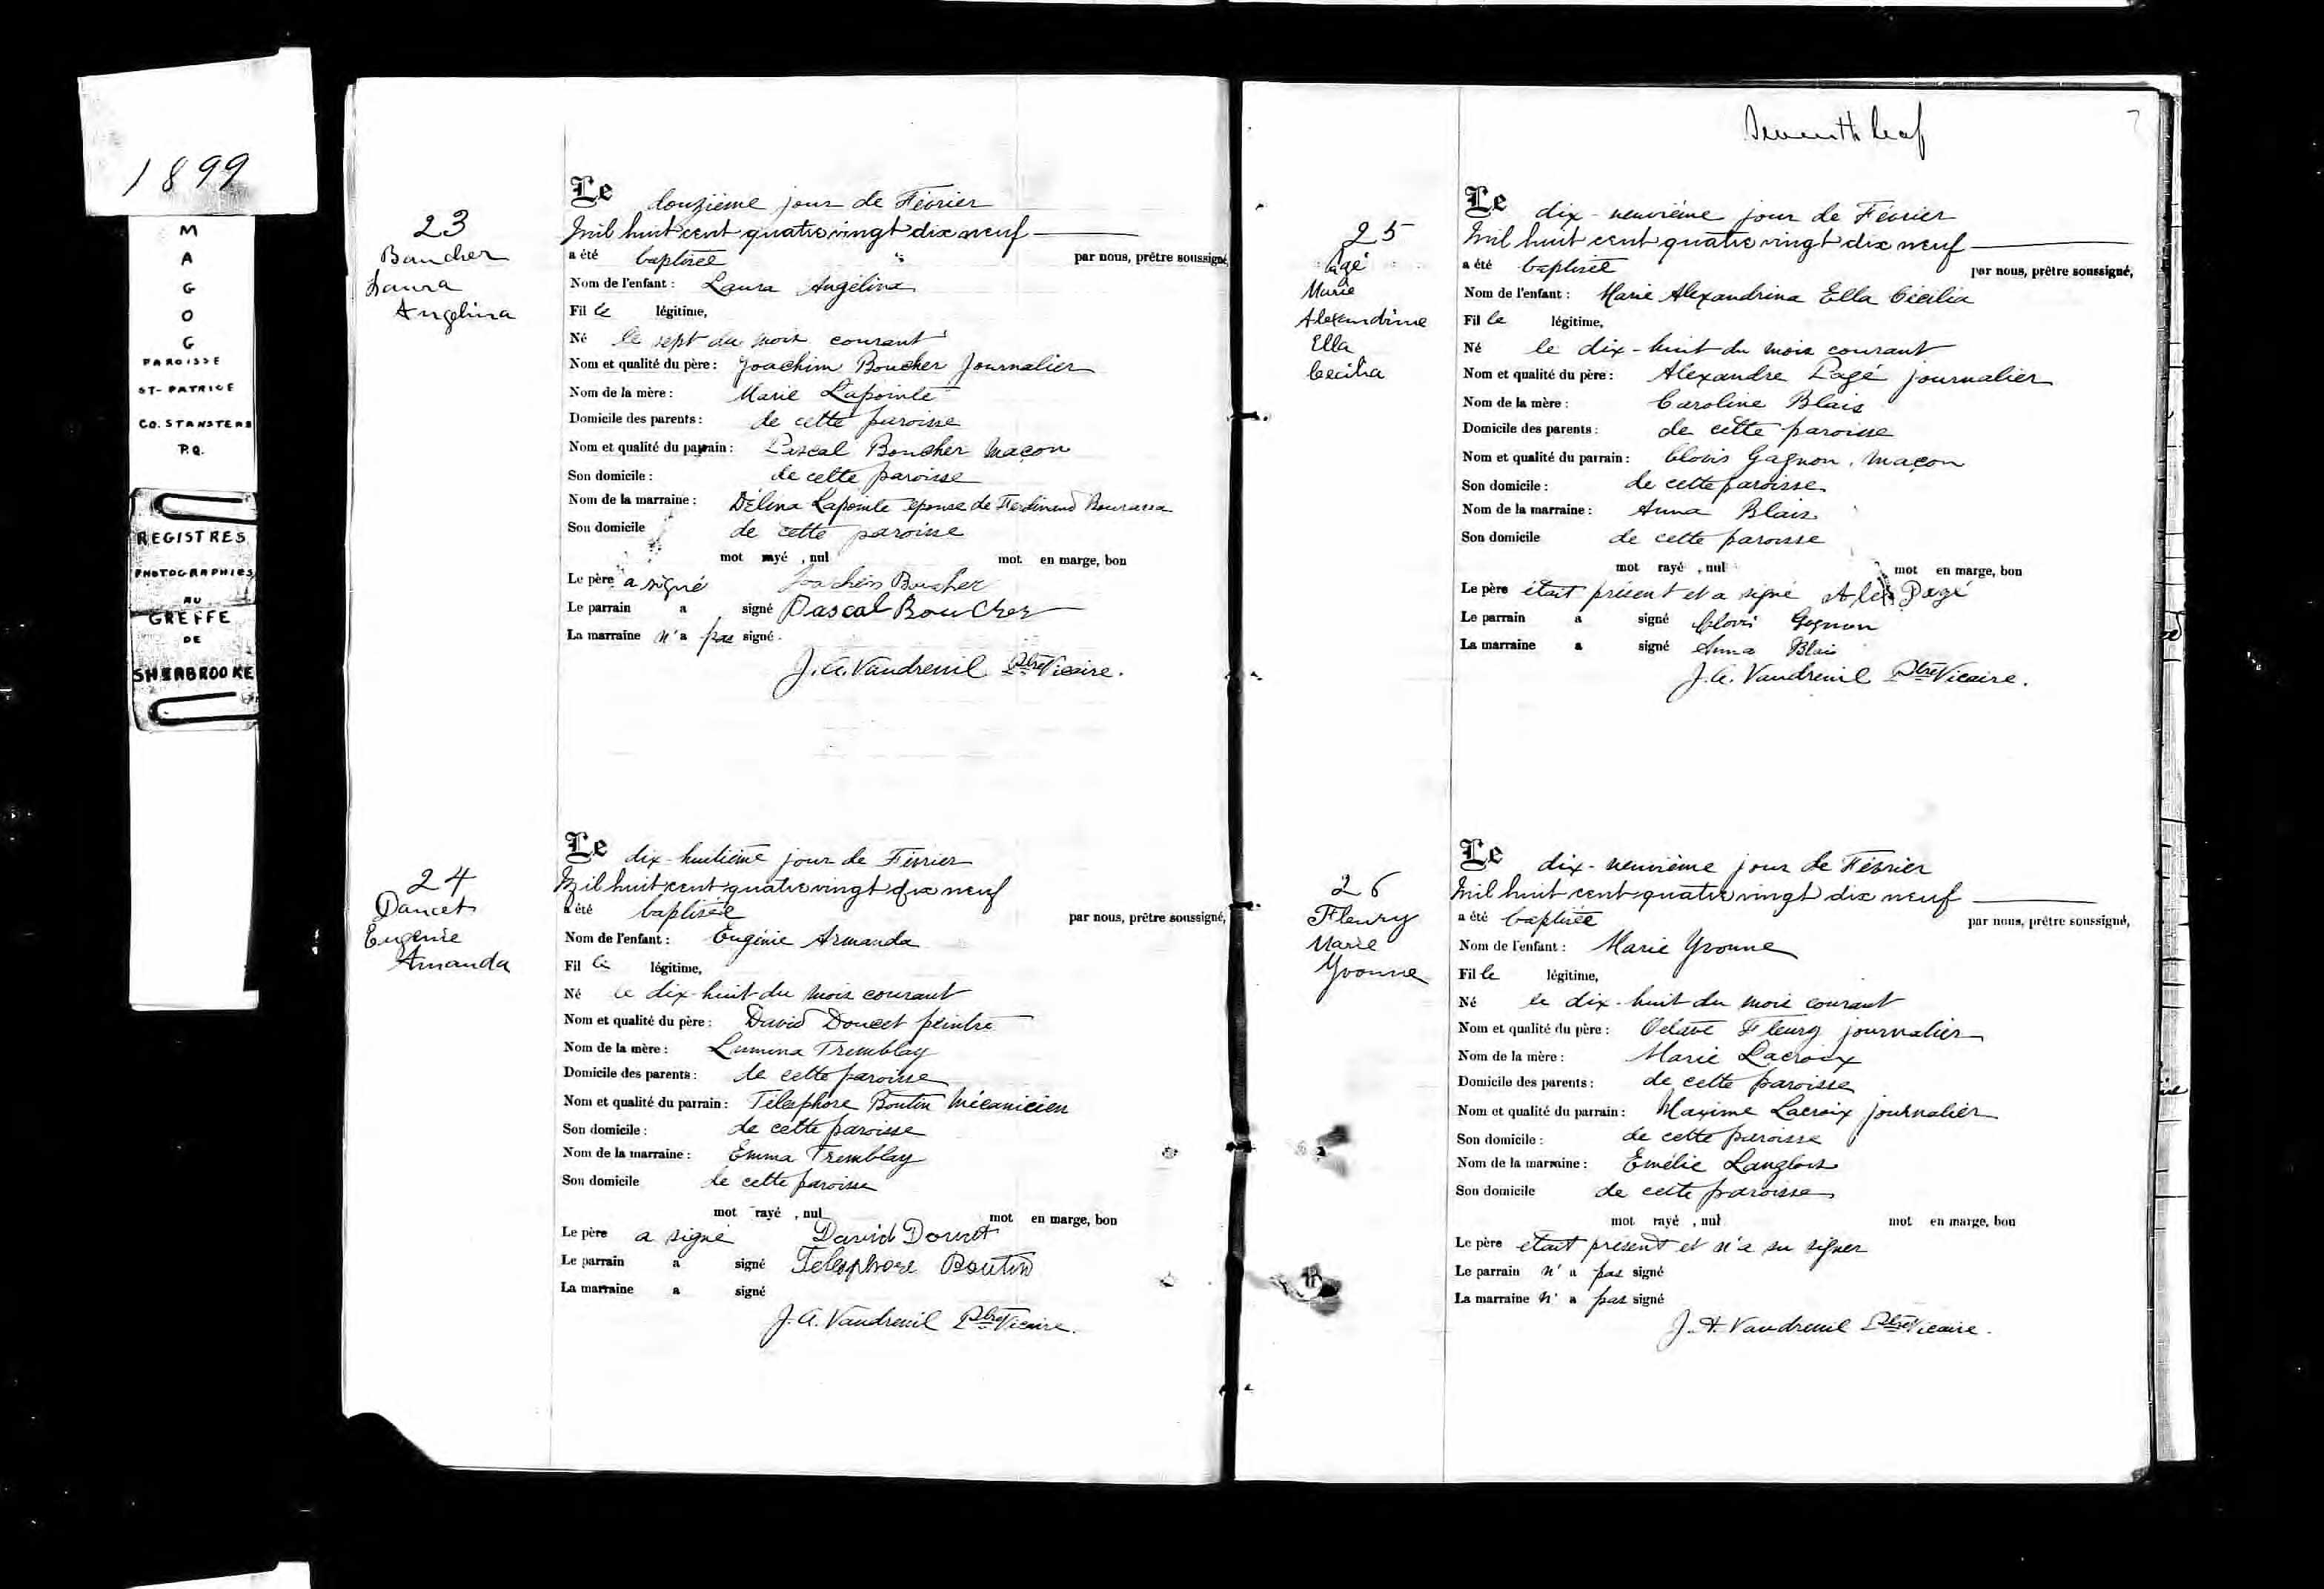 1899
M
A
G
O
G
PAROISSE
ST-PATRICE
CO. STANSTEAD
P.Q.
REGISTRES
PHOTOGRAPHIES
AU
GREFFE
DE
SHERBROOKE
23
Boucher
Laura
Angelina
Le douzième jour de Février
Mil huit cent quatre vingt dix neuf
a été baptisée par nous, prêtre soussigné,
Nom de l'enfant : Laura Angélina
Fil le légitime,
Né le sept du mois courant
Nom et qualité du père : Joachim Boucher Journalier
Nom de la mère : Marie Lapointe
Domicile des parents : de cette paroisse
Nom et qualité du parrain : Pascal Boucher Maçon
Son domicile : de cette paroisse
Nom de la marraine : Délina Lapointe épouse de Ferdinand Bourassa
Son domicile de cette paroisse
mot rayé , nul mot en marge, bon
Le père a signé Joachim Boucher
Le parrain a signé Pascal Boucher
La marraine n'a pas signé.
J. A. Vaudreuil Ptre Vicaire.
24
Doucet
Eugénie
Amanda
Le dix-huitième jour de Février
Mil huit cent quatre vingt dix neuf
a été baptisée par nous, prêtre soussigné,
Nom de l'enfant : Eugénie Armanda
Fil le légitime,
Né le dix-huit du mois courant
Nom et qualité du père : David Doucet peintre
Nom de la mère : Lumina Tremblay
Domicile des parents : de cette paroisse
Nom et qualité du parrain : Télesphore Boutin Mécanicien
Son domicile : de cette paroisse
Nom de la marraine : Emma Tremblay
Son domicile de cette paroisse
mot rayé , nul mot en marge, bon
Le père a signé David Doucet
Le parrain a signé Telesphore Boutin
La marraine a signé
J. A. Vaudreuil Ptre Vicaire.
Seventh leaf
25
Pagé
Marie
Alexandrine
Ella
Cecilia
Le dix-neuvième jour de Février
Mil huit cent quatre vingt dix neuf
a été baptisée par nous, prêtre soussigné,
Nom de l'enfant : Marie Alexandrina Ella Cécilia
Fil le légitime,
Né le dix-huit du mois courant
Nom et qualité du père : Alexandre Pagé journalier
Nom de la mère : Caroline Blais
Domicile des parents : de cette paroisse
Nom et qualité du parrain : Clovis Gagnon, Maçon
Son domicile : de cette paroisse
Nom de la marraine : Anna Blais
Son domicile de cette paroisse
mot rayé , nul mot en marge, bon
Le père était présent et a signé Alex Pagé
Le parrain a signé Clovis Gagnon
La marraine a signé Anna Blais
J. A. Vaudreuil Ptre Vicaire.
26
Fleury
Marie
Yvonne
Le dix-neuvième jour de Février
Mil huit cent quatre vingt dix neuf
a été baptisée par nous, prêtre soussigné,
Nom de l'enfant : Marie Yvonne
Fil le légitime,
Né le dix-huit du mois courant
Nom et qualité du père : Octave Fleury journalier
Nom de la mère : Marie Lacroix
Domicile des parents : de cette paroisse
Nom et qualité du parrain : Maxime Lacroix journalier
Son domicile : de cette paroisse
Nom de la marraine : Emélie Langlois
Son domicile de cette paroisse
mot rayé , nul mot en marge, bon
Le père était présent et n'a su signer
Le parrain n'a pas signé
La marraine n'a pas signé
J. A. Vaudreuil Ptre Vicaire.